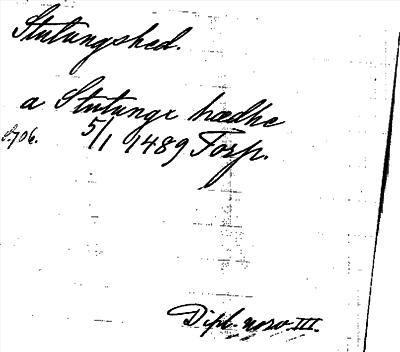 Stutungshed.
a Stutunge hædhe
s. 706. 5/1 1489 Torp.
Dipl. norv. III.